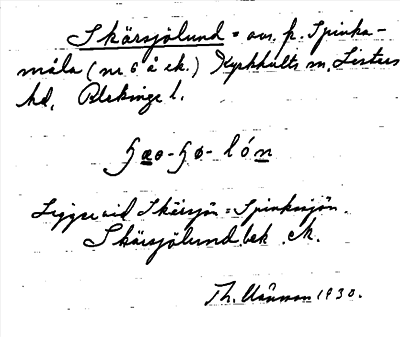 Skärsjölund = avs. fr. Spinka-
måla (nr 6 å ek.) Kyrkhults sn, Listers
hd, Blekinge l.
ꞕæo-ꞕo-lón
Ligger vid Skärsjön = Spinksjön.
Skärsjölund bek. M.
Th. 1930.